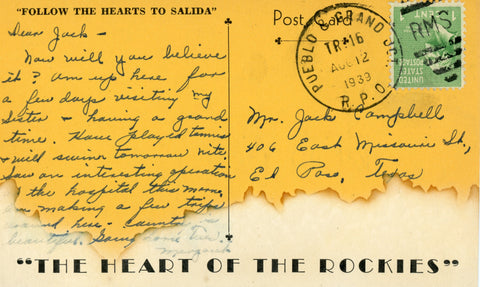 "FOLLOW THE HEARTS TO SALIDA"
Dear Jack –
Now will you believe
it? Am up here for
a few days visiting my
sister & having a grand
time. Have played tennis
& will swim tomorrow nite.
Saw an interesting operation
at the hospital this morn.
Am making a few trips
around here – country is
beautiful. Going home Tues.
Post Card
PUEBLO & GRAND JC.
TR. 16
AUG 12
1939
R.P.O.
RMS
1 CENT 1
UNITED STATES
POSTAGE
Mr. Jack Campbell
406 East Missouri St.,
El Paso, Texas
"THE HEART OF THE ROCKIES"